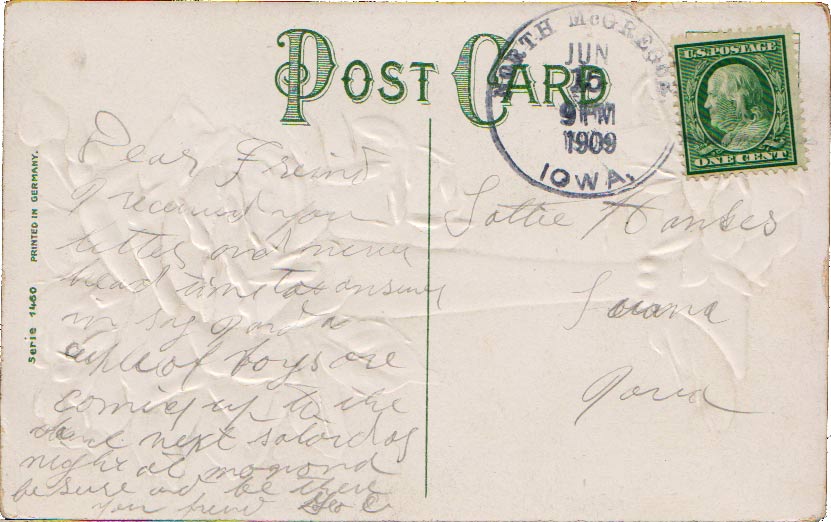 POST CARD
NORTH McGREGOR
JUN
15
9 PM
1909
IOWA.
U.S. POSTAGE
ONE CENT
Serie 1460 PRINTED IN GERMANY.
Dear Freind
I received you
letter and never
head time to answer
say I and a
of boys are
coming up to the
next saterday
night at monona
be sure and be there
your freind Geo C
Lottie Hankes
Luana
Iowa